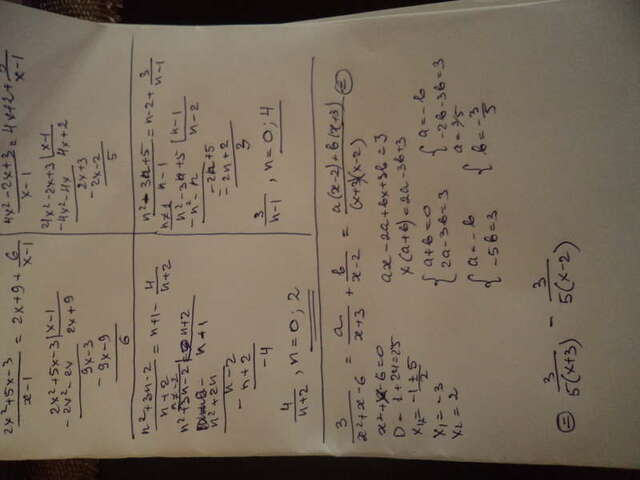 2x²+5x-3/x-1 = 2x+9+6/x-1
2x²+5x-3 | x-1
-2x²-2x 2x+9
9x-3
-9x-9
6
4x²-2x+3/x-1 = 4x+2+
4x²-2x+3 | x-1
-4x²-4x 4x+2
2x+3
-2x-2
5
n²+3n-2/n+2 = n+1-4/n+2
n+2
n+1
n²+2n
n-2
-n+2
-4
4/n+2, n=0; 2
n²-3n+5/n-1 = n-2+3/n-1
n²-3n+5 | n-1
-n²-n n-2
-2n+5
-2n+2
3
3/n-1, n=0; 4
3/x²+x-6 = a/x+3 + b/x-2 = a(x-2)+b(x+3)/(x+3)(x-2) =
x²+x-6=0
D=1+24=25
x=-1±5/2
x₁=-3
x₂=2
ax-2a+bx+3b=3
x(a+b)=2a-3b+3
{a+b=0
2a-3b=3
{a=-b
-5b=3
{a=-b
-2b-3b=3
a=3/5
{b=-3/5
= 3/5(x+3) - 3/5(x-2)